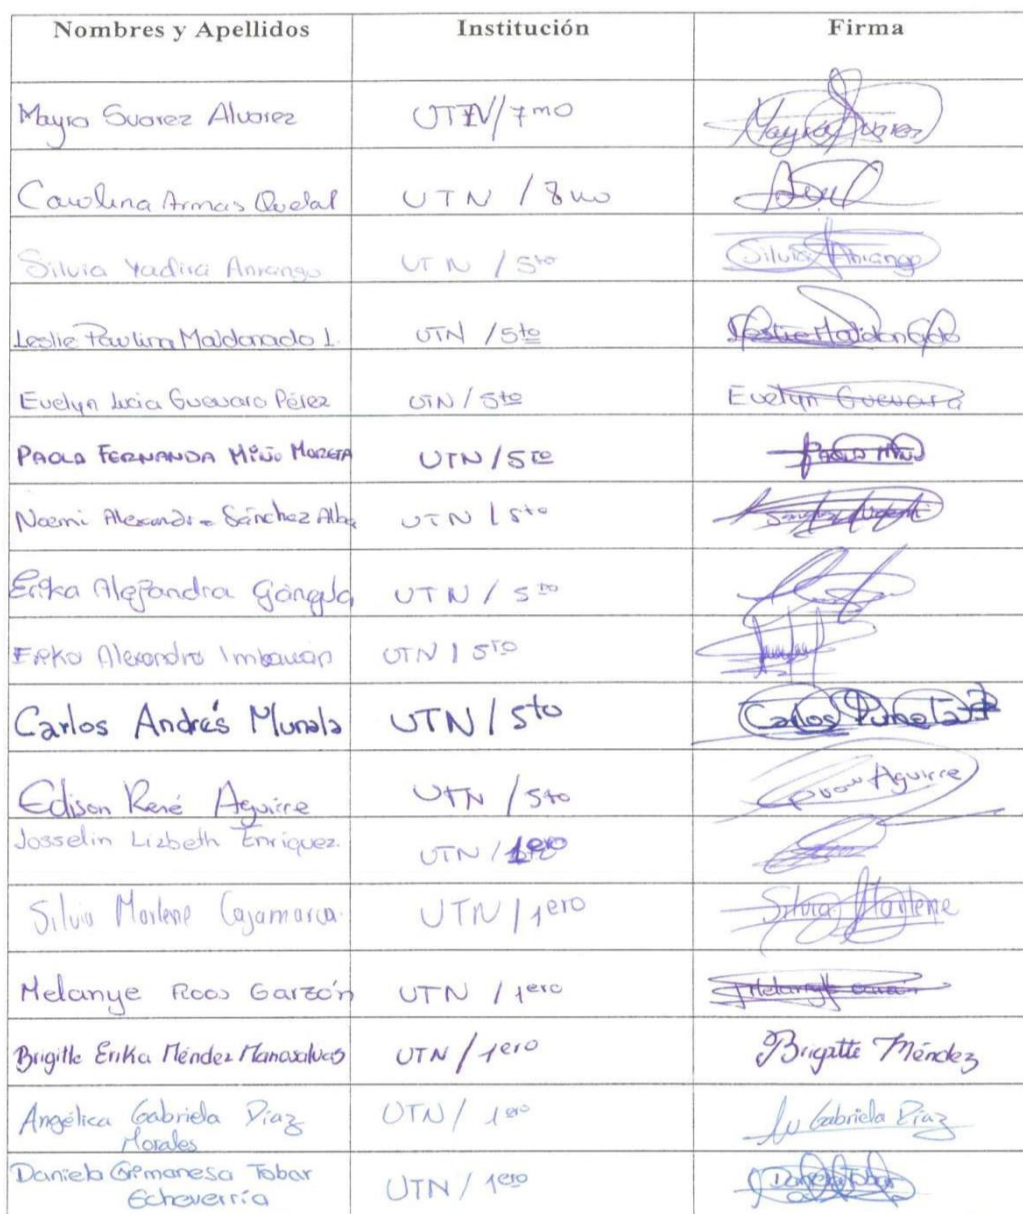 Nombres y Apellidos Institución Firma
Mayra Suarez Alvarez UTN/7mo Mayra Suarez
Carolina Armas Quelal UTN / 8vo
Silvia Yadira Anrango UTN / 5to Silvia Anrango
Leslie Paulina Maldonado L. UTN /5to Leslie Maldonado
Evelyn Lucia Guevara Pérez UTN / 5to Evelyn Guevara
PAOLA FERNANDA Miño MORETA UTN/5to PAOLA Miño
Noemi Alexandra Sánchez Alba UTN / 5to
Erika Alejandra UTN / 5to
Erika Alexandra Imbaquin UTN / 5to
Carlos Andrés UTN / 5to Carlos
Edison René Aguirre UTN / 5to Aguirre
Josselin Lizbeth Enriquez. UTN / 1ero
Silvia Marlene Cajamarca. UTN / 1ero Silvia Marlene
Melanye Garzón UTN / 1ero Melanye
Brigitte Erika Méndez Manosalvas UTN / 1ero Brigitte Méndez
Angélica Gabriela Díaz UTN / 1ero Gabriela Díaz
Morales
Daniela Grimanesa Tobar UTN / 1ero Daniela Tobar
Echeverría